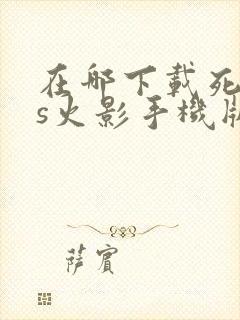 在哪下載死
s火影手機版
萨賓